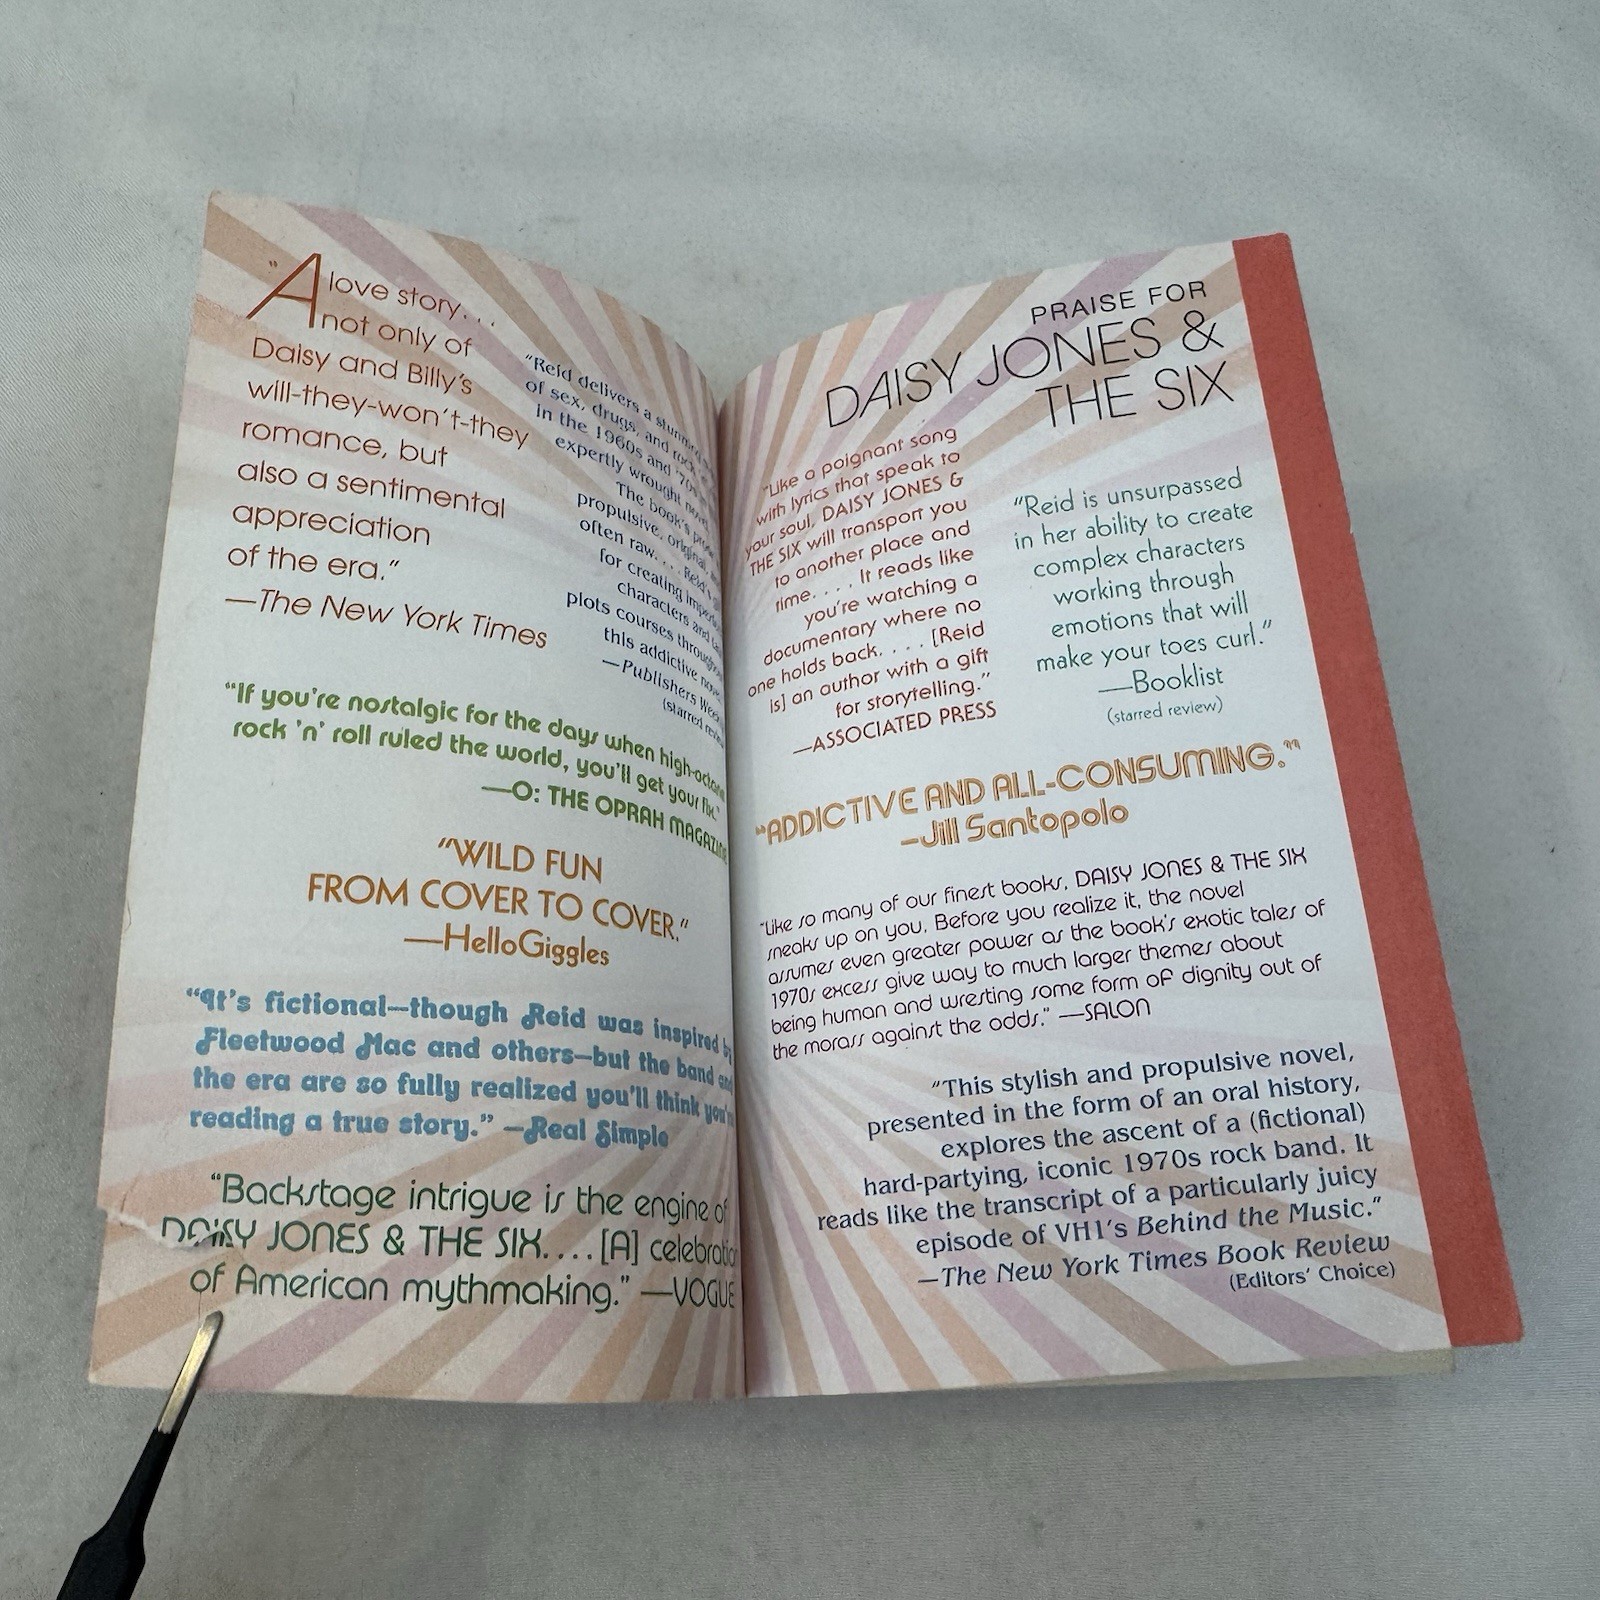 "A love story. . .
not only of
Daisy and Billy's
will-they-won't-they
romance, but
also a sentimental
appreciation
of the era."
—The New York Times
"Reid delivers a
of sex, drugs, and rock
in the 1960s and '70s
expertly wrought novel
The book's
propulsive, original,
often raw. . . . Reid's
for creating
characters and
plots courses
this addictive
—Publishers
(starred
"If you're nostalgic for the days when high-octane
rock 'n' roll ruled the world, you'll get your fix."
—O: THE OPRAH MAGAZINE
"WILD FUN
FROM COVER TO COVER."
—HelloGiggles
"It's fictional—though Reid was inspired by
Fleetwood Mac and others—but the band and
the era are so fully realized you'll think you're
reading a true story." —Real Simple
"Backstage intrigue is the engine of
DAISY JONES & THE SIX. . . . [A]
of American mythmaking." —VOGUE
PRAISE FOR
DAISY JONES &
THE SIX
"Like a poignant song
with lyrics that speak to
your soul, DAISY JONES &
THE SIX will transport you
to another place and
time. . . . It reads like
you're watching a
documentary where no
one holds back. . . . [Reid
is] an author with a gift
for storytelling."
—ASSOCIATED PRESS
"Reid is unsurpassed
in her ability to create
complex characters
working through
emotions that will
make your toes curl."
—Booklist
(starred review)
"ADDICTIVE AND ALL-CONSUMING."
—Jill Santopolo
"Like so many of our finest books, DAISY JONES & THE SIX
sneaks up on you. Before you realize it, the novel
assumes even greater power as the book's exotic tales of
1970s excess give way to much larger themes about
being human and wresting some form of dignity out of
the morass against the odds." —SALON
"This stylish and propulsive novel,
presented in the form of an oral history,
explores the ascent of a (fictional)
hard-partying, iconic 1970s rock band. It
reads like the transcript of a particularly juicy
episode of VH1's Behind the Music."
—The New York Times Book Review
(Editors' Choice)